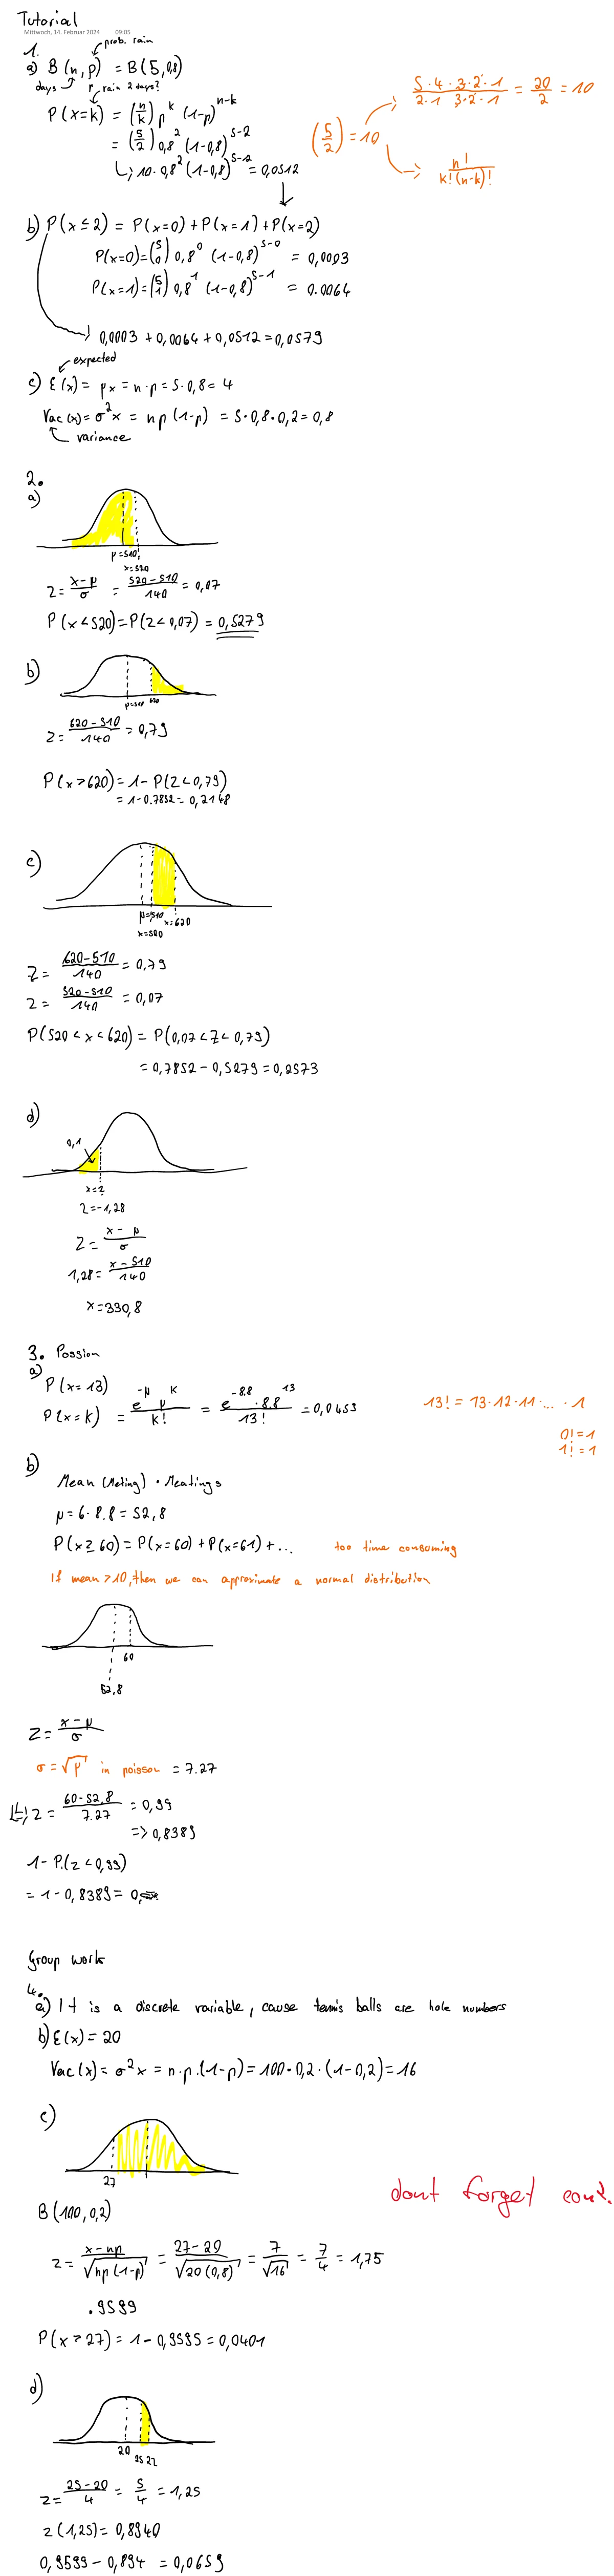 Tutorial
Mittwoch, 14. Februar 2024 09:05
1.
prob. rain
a) B(n,p) = B(5,0,8)
days rain 2 days?
P(x=k) = (n k) p^k (1-p)^n-k
= (5 2) 0,8^2 (1-0,8)^5-2
↳ 10·0,8^2 (1-0,8)^5-2 = 0,0512
(5 2) = 10
5·4·3·2·1 / 2·1 3·2·1 = 20/2 = 10
n! / k!(n-k)!
b) P(x≤2) = P(x=0) + P(x=1) + P(x=2)
P(x=0) = (5 0) 0,8^0 (1-0,8)^5-0 = 0,0003
P(x=1) = (5 1) 0,8^1 (1-0,8)^5-1 = 0.0064
0,0003 + 0,0064 + 0,0512 = 0,0579
expected
c) E(x) = μx = n·p = 5·0,8 = 4
Var(x) = σ^2x = np(1-p) = 5·0,8·0,2 = 0,8
variance
2.
a)
μ=510
x=520
z = x-μ / σ = 520-510 / 140 = 0,07
P(x<520) = P(z<0,07) = 0,5279
b)
μ=510 620
z = 620-510 / 140 = 0,79
P(x>620) = 1-P(z<0,79)
= 1-0.7852 = 0,2148
c)
μ=510 x=620
x=520
z = 620-510 / 140 = 0,79
z = 520-510 / 140 = 0,07
P(520<x<620) = P(0,07<z<0,79)
= 0,7852 - 0,5279 = 0,2573
d)
0,1
x=?
z=-1,28
z = x-μ / σ
1,28 = x-510 / 140
x=330,8
3. Possion
a)
P(x=13)
P(x=k) = e^-μ μ^k / k! = e^-8.8 · 8.8^13 / 13! = 0,0453
13! = 13·12·11·...·1
0!=1
1!=1
b)
Mean (Meting) · Meatings
μ = 6·8.8 = 52,8
P(x≥60) = P(x=60) + P(x=61) + ... too time consuming
If mean >10, then we can approximate a normal distribution
60
52,8
z = x-μ / σ
σ = √μ in poisson = 7.27
z = 60-52,8 / 7.27 = 0,99
=> 0,8389
1-P(z<0,99)
= 1-0,8389 = 0,
Group work
4.
a) It is a discrete variable, cause tennis balls are hole numbers
b) E(x) = 20
Var(x) = σ^2x = n·p·(1-p) = 100·0,2·(1-0,2) = 16
c)
27
dont forget
B(100,0,2)
z = x-np / √np(1-p) = 27-20 / √20(0,8) = 7/√16 = 7/4 = 1,75
.9599
P(x>27) = 1-0,9599 = 0,0401
d)
20 25 27
z = 25-20 / 4 = 5/4 = 1,25
z(1,25) = 0,8940
0,9599 - 0,894 = 0,0659